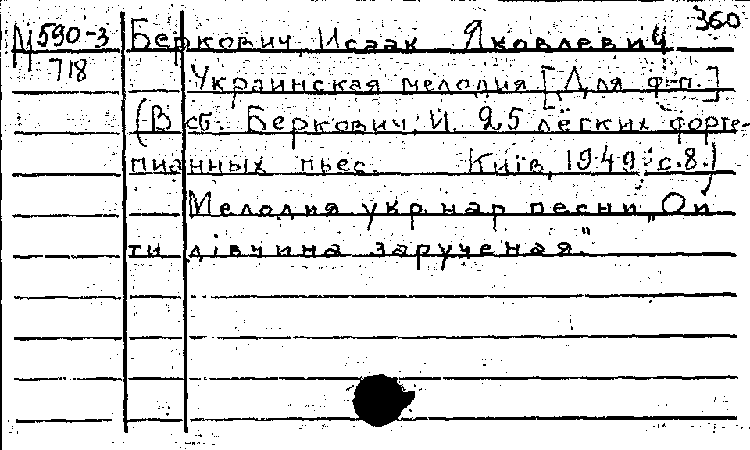 360
М 590-3 Беркович, Исаак Яковлевич
718 Украинская мелодия [Для ф-п.]
(В сб. Беркович, И. 25 лёгких форте-
пианных пьес. Київ, 1949, с.8.)
Мелодия укр. нар. песни „Ой
ти дівчина зарученая."